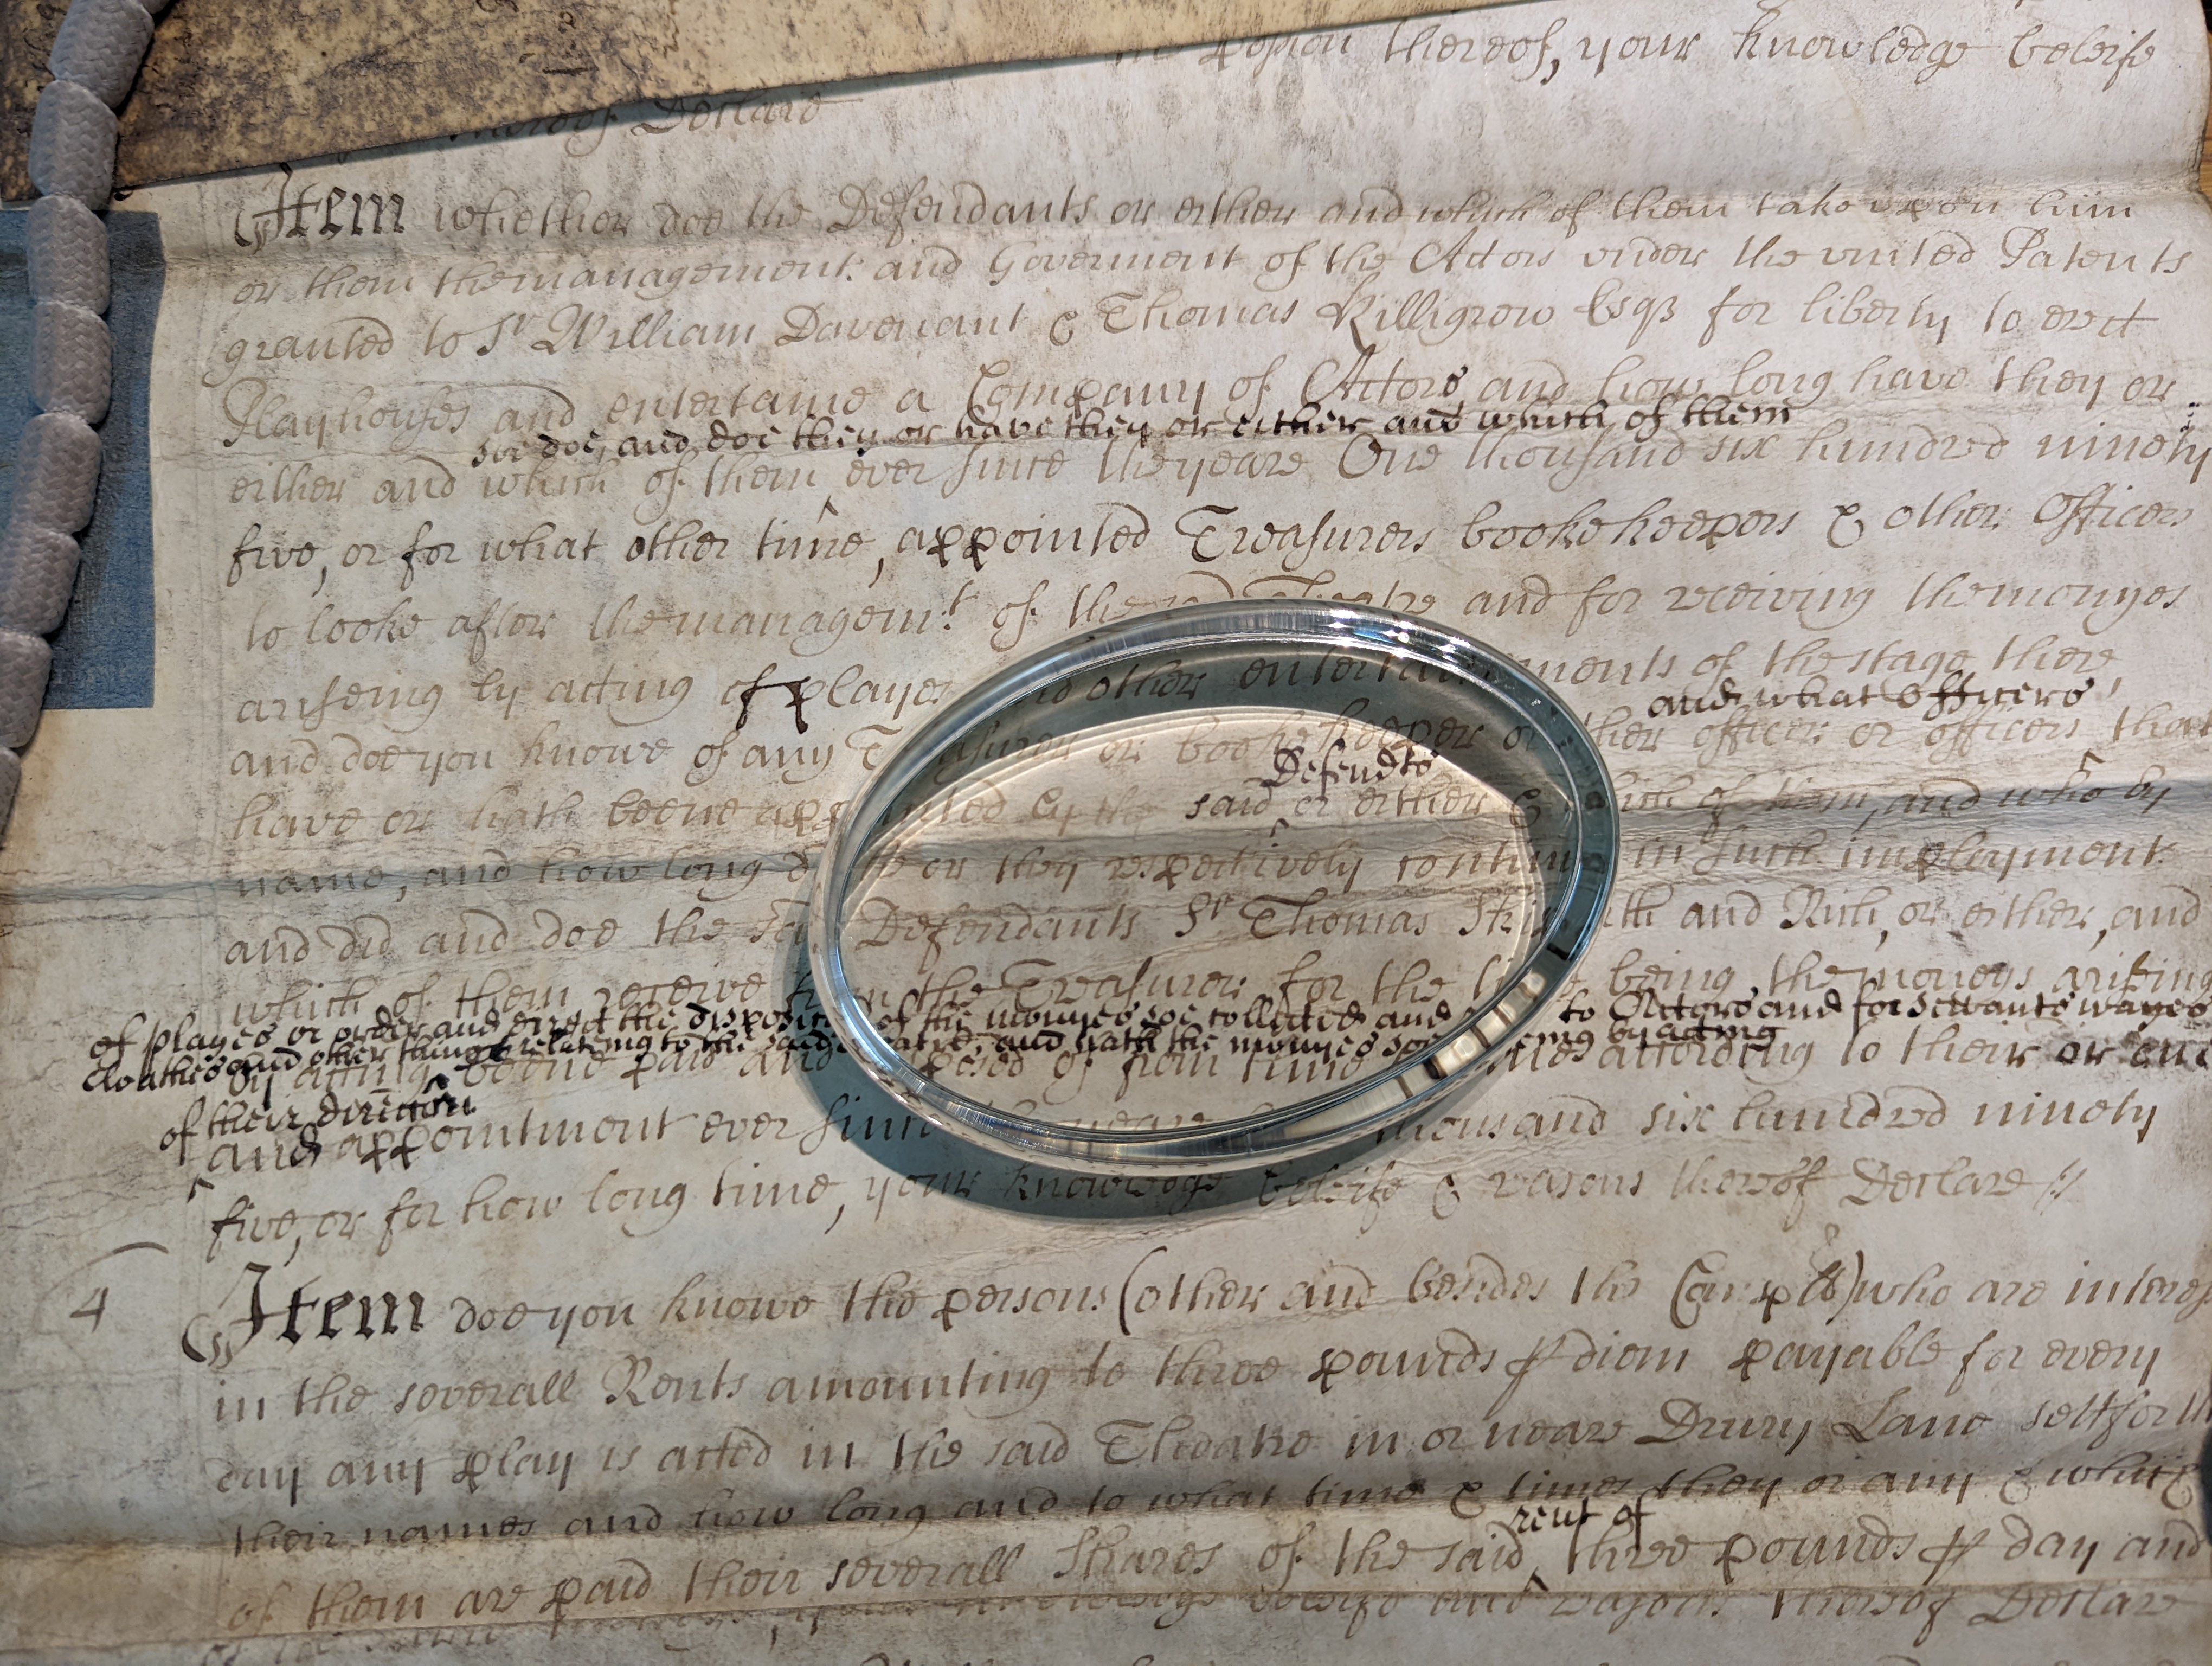 thereof, your knowledge beleife
thereof Declare
Item whether doe the Defendants or either and which of them take upon him
or them the management and Goverment of the Actors under the united Patents
granted to Sr William Davenant & Thomas Killigrew Esqs for liberty to erect
Playhouses and entertaine a Company of Actors, and how long have they or
soe doe, and doe they or have they or either and which of them
either and which of them ever since the yeare One thousand six hundred ninety
five, or for what other time, appointed Treasurers bookekeepers & other Officers
to looke after the managemt. of the sd Theatre and for receiving the monyes
ariseing by acting of playes and other entertainments of the stage there,
and what Officers
and doe you knowe of any Treasurer or bookekeeper or other officer or officers that
Defendts
have or hath beene appointed by the said or either & which of them, and who by
name, and how long did he or they respectively continue in such imployment
and did and doe the said Defendants Sr Thomas Skipwith and Rich, or either, and
which of them receive from the Treasurer for the time being the moneys arising
of playes or order and direct the disposition of the monyes soe collected and to Actors and for servants wages
cloathes and other things relateing to the said Theatre, and hath the monyes soe by acting
by acting beene paid and disposed of from time according to their or one
of their direction
and appointment ever since the yeare thousand six hundred ninety
five, or for how long time, your knowledge beleife & reasons thereof Declare
4
Item doe you knowe the persons (other and besides the Compts) who are interes
in the severall Rents amounting to three pounds ꝑ diem payable for every
day any play is acted in the said Theatre in or neare Drury Lane settforth
their names and how long and to what time & times they or any & which
rent of
of them are paid their severall Shares of the said three pounds ꝑ day and
knowledge beleife and reasons thereof Declare